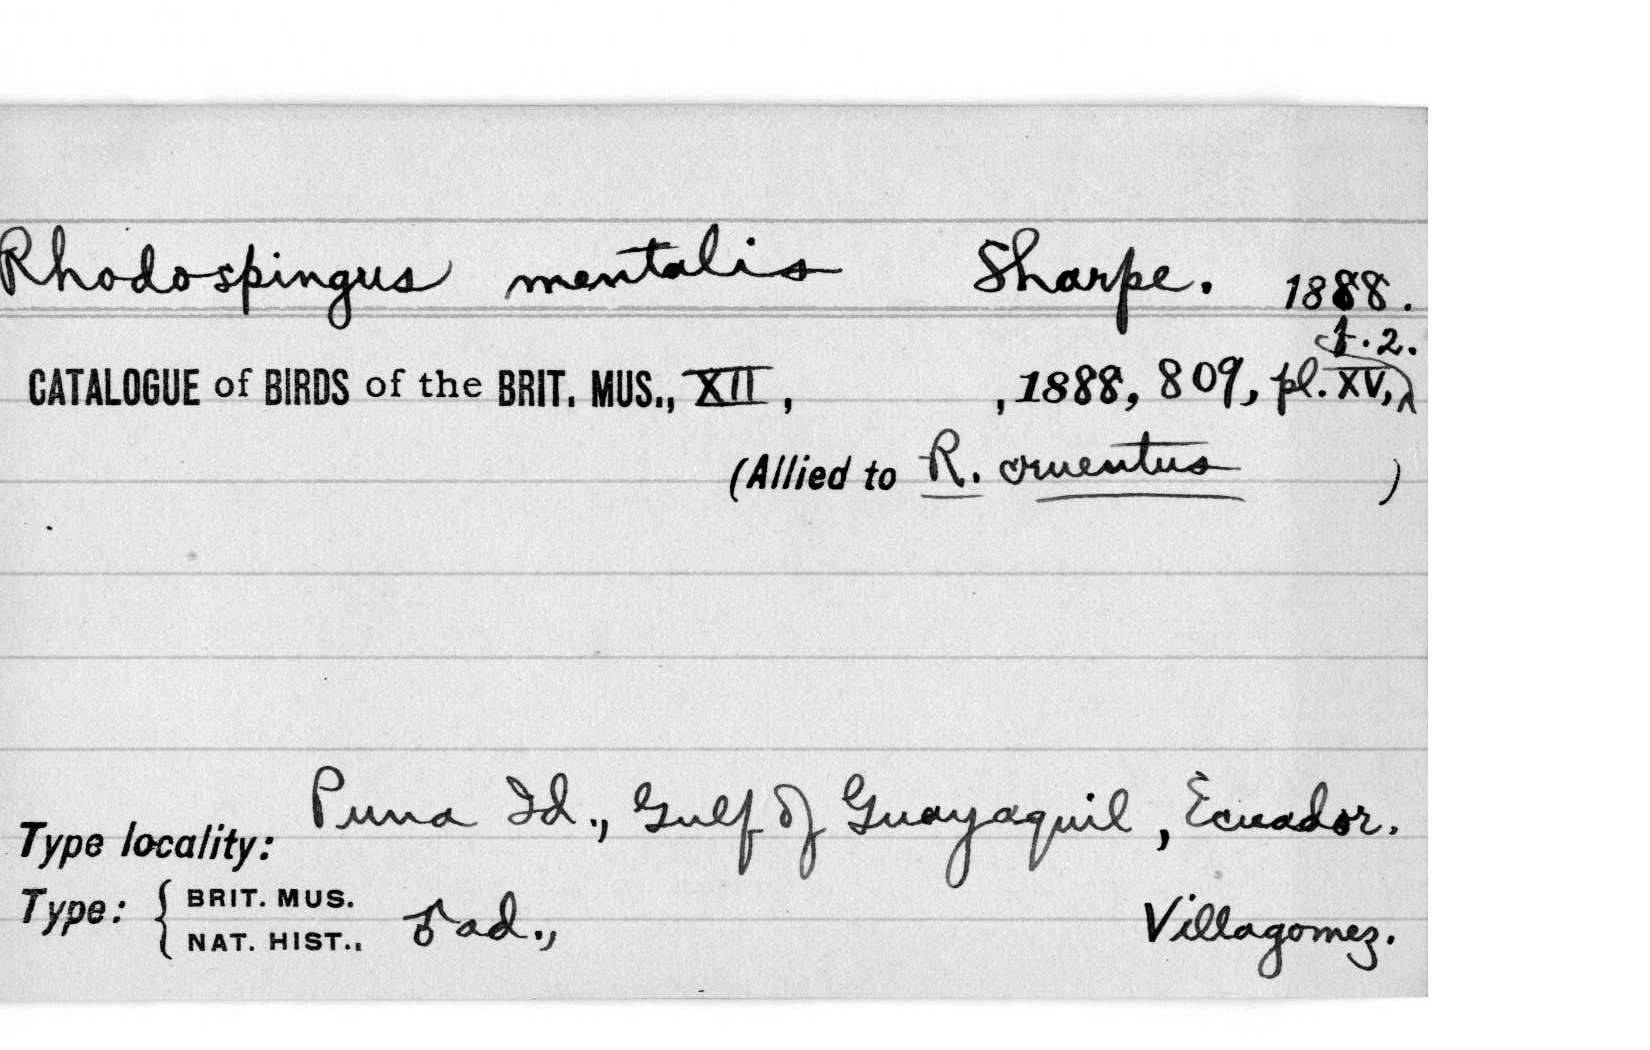 Rhodospingus mentalis Sharpe. 1888.
f.2.
CATALOGUE of BIRDS of the BRIT. MUS., XII, , 1888, 809, pl. XV,
(Allied to R. cruentus )
Type locality: Puna Id., Gulf of Guayaquil, Ecuador.
Type: { BRIT. MUS.
NAT. HIST., ♂ ad., Villagomez.